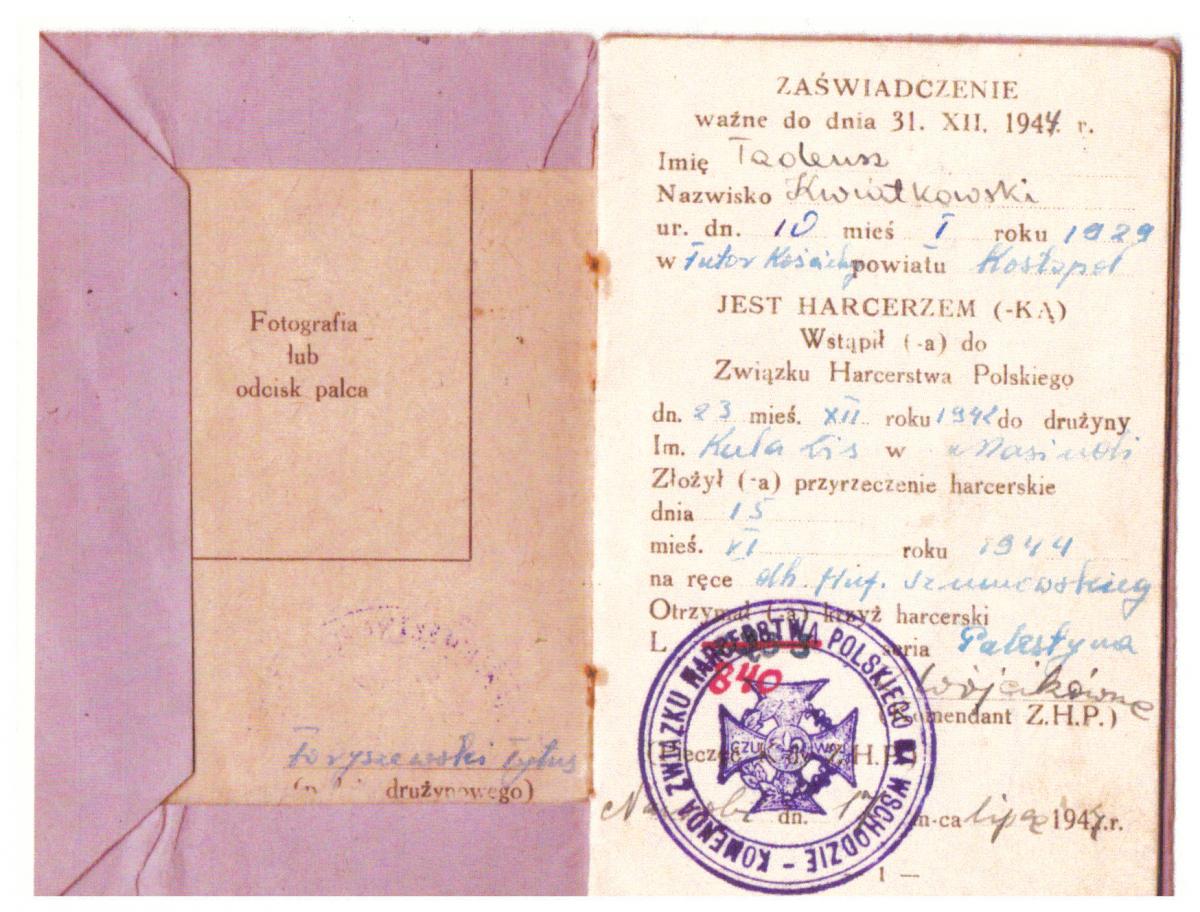 Fotografia
lub
odcisk palca
Foryszewski Tytus
drużynowego)
ZAŚWIADCZENIE
ważne do dnia 31. XII. 1947 r.
Imię Tadeusz
Nazwisko Kwiatkowski
ur. dn. 10 mieś I roku 1929
w Futor powiatu Kostopol
JEST HARCERZEM (-KĄ)
Wstąpił (-a) do
Związku Harcerstwa Polskiego
dn. 23 mieś. XII roku 1942 do drużyny
Im. Kula Lis w Masindi
Złożył (-a) przyrzeczenie harcerskie
dnia 15
mieś. VI roku 1944
na ręce dh. Huf.
Otrzymał (-a) krzyż harcerski
L 840 seria Palestyna
Wójcikówna
(Komendant Z.H.P.)
Z.H.P.)
dn. 17 m-ca lipca 1947.r.
1 —
KOMENDA ZWIĄZKU HARCERSTWA POLSKIEGO NA WSCHODZIE -
CZUWAJ